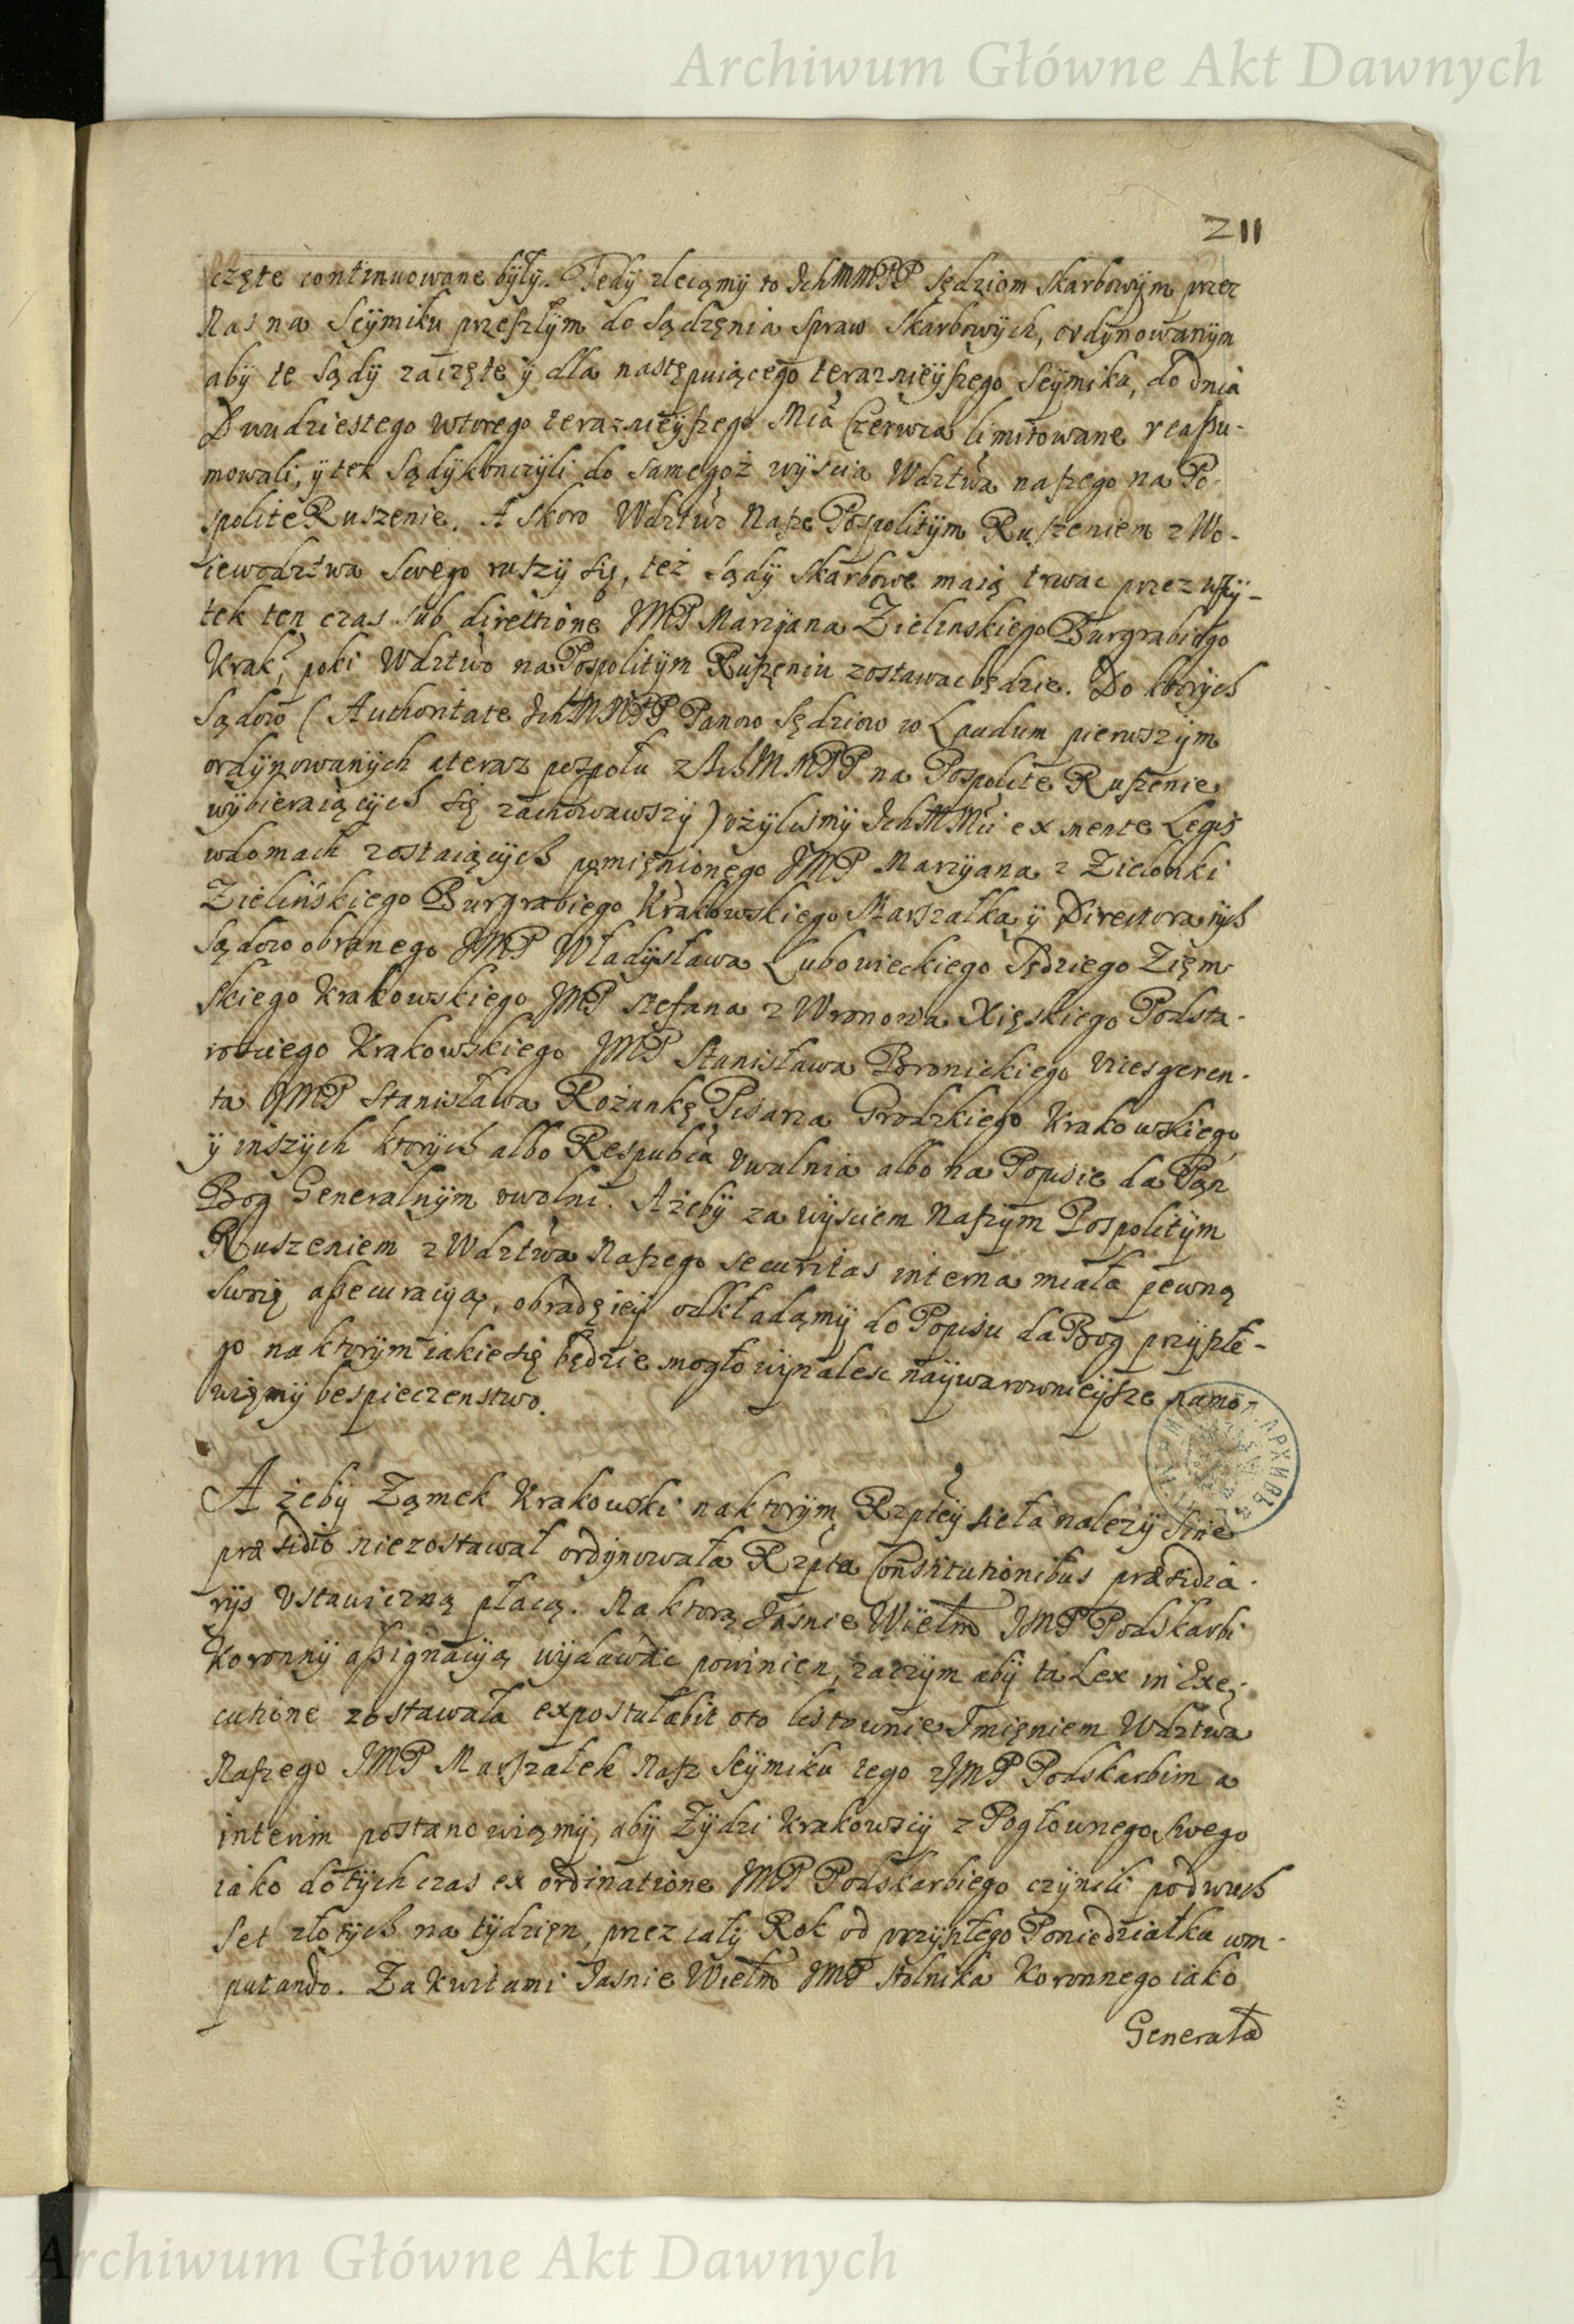 Archiwum Główne Akt Dawnych
211
częte continuowane były. Tedy zlecamy to IchMMPP Sędziom Skarbowym przez
Nas na Seymiku przeszłym do Sądzenia Spraw Skarbowych, ordynowanym
aby te Sądy zaczęte y dla następuiącego teraznieyszego Seymiku, do dnia
Dwudziestego wtorego teraznieyszego Mca Czerwca limitowane reassu-
mowali, y tek Sądy konczyli do samegoż wyscia Wdztwa naszego na Po-
spolite Ruszenie. A skoro Wdztwo Nasze Pospolitym Ruszeniem z Wo-
iewodztwa Swego ruszy się, też Sądy Skarbowe maią trwac przez wszy-
tek ten czas sub directione JMP Marcyana Zielinskiego Burgrabiego
Krak; poki Wdztwo na Pospolitym Ruszeniu zostawac będzie. Do ktorych
Sądow (Authoritate IchMMPP Panow Sędziow w Laudum pierwszym
ordynowanych ateraz pospołu z IchMMPP na Pospolite Ruszenie
wybieraiących się zachowawszy) użylismy IchMMci ex mente Legis
wdomach zostaiących pomięnionego JMP Marcyana z Zielonki
Zielińskiego Burgrabiego Krakowskiego Marszałka y Directora tych
Sądow obranego JMP Władysława Lubowieckiego Sędziego Zięm-
skiego Krakowskiego JMP Stefana z Wronowa Xięskiego Podsta-
rosciego Krakowskiego JMP Stanisława Boronickiego Vicesgeren-
ta JMP Stanisława Rożankę Pisarza Grodzkiego Krakowskiego,
y inszych ktorych albo Respublica uwalnia albo na Popisie da Pan
Bog Generalnym uwolni. Ażeby za wysciem Naszym Pospolitym
Ruszeniem z Wdztwa Naszego securitas interna miała pewną
Swoię assecuracyą, obradę iey odkładamy do Popisu da Bog przyszłe-
go na ktorym iakie się będzie mogło wynalesc naywarownieysze namo-
więmy bespieczenstwo.
Ażeby Zamek Krakowski na ktorym Rzptey siełа należy Sine
præsidio niezostawał ordynowała Rzpta Constitutionibus præsidia-
rys Ustawiczną płacą. Na ktorą Jasnie Wielm JMP Podskarbi
Koronny assignacyą wydawac powinien, zaczym aby ta Lex in Exe-
cutione zostawała expostulabit oto listownie Imięniem Wdztwa
Naszego JMP Marszałek Nasz Seymiku tego z JMP Podskarbim a
interim postanowięmy, aby Żydzi Krakowscy z Pogłownego Swego
iako dotychczas ex ordinatione JMP Podskarbiego czynili po dwuch
Set złotych na tydzięn, przez cały Rok od przyszłego Poniedziałku com-
putando. Za Kwitami Jasnie Wielm JMP Stolnika Koronnego iako
Generała
Archiwum Główne Akt Dawnych